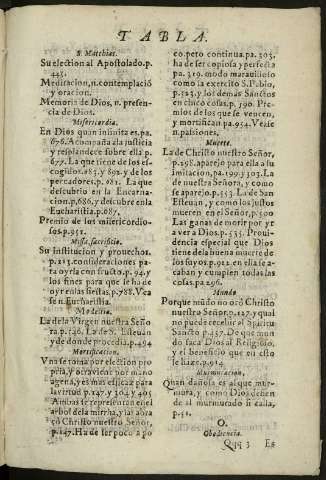 TABLA.
S. Matthias.
Su election al Apostolado. p.
443.
Meditacion, n. contemplaciõ
y oracion.
Memoria de Dios, n. presen-
cia de Dios.
Misericordia.
En Dios quan infinita es. pa.
676. Acompaña la justicia
y resplandece sobre ella p.
677. La que tiene de los es-
cogidos. 683. y 892. y de los
pecadores. p. 681. La que
descubrio en la Encarna-
cion. p. 686. y descubre en la
Eucharistia. p. 687.
Premio de los misericordio-
sos. p. 951.
Missa, sacrificio.
Su institucion y prouechos.
p. 213. consideraciones pa-
ra oyrla con fructo. p. 94. y
los fines para que se ha de
oyr en las fiestas, p. 788. Vea
se n. Eucharistia.
Modestia.
La de la Virgen nuestra Seño
ra p. 136. La de S. Esteuan
y de donde procedia. p. 494
Mortificacion.
Vna se toma por election pro
pria, y otra viene por mano
agena, y es mas eficaz para
la virtud p. 147. y 304. y 405
Ambas se representan en el
arbol de la mirrha, y la abraço
Christo nuestro Señor,
p. 147. Ha de ser poco a po
co. pero continua. pa. 303.
ha de ser copiosa y perfecta
pa. 319. modo marauilloso
como la exercito S. Pablo,
p. 523. y los demas Sanctos
en cinco cosas. p. 390. Pre-
mios de los que se vencen,
y mortifican pa. 954. Vease
n. passiones.
Muerte.
La de Christo nuestro Señor,
p. 298. aparejo para ella a su
imitacion, pa. 199. y 303. La
de nuestra Señora, y como
se aparejo. p. 553. La de San
Esteuan, y como los justos
mueren en el Señor, p. 500
Las ganas de morir por yr
a ver a Dios p. 535. Proui-
dencia especial que Dios
tiene de la buena muerte de
los suyos. p. 912. en ella se a-
caban y cumplen todas las
cosas. pa. 296.
Mundo
Porque mũdo no orô Christo
nuestro Señor. p. 127. y qual
no puede recebir al Spiritu
Sancto p. 437. De que mun-
do saca Dios al Religioso,
y el beneficio que en esto
le haze. p. 914.
Murmuracion,
Quan dañosa es al que mur-
mura, y como Dios defien
de al murmurado si calla,
p. 51.
O.
Obediencia.
Qqq 3
Es